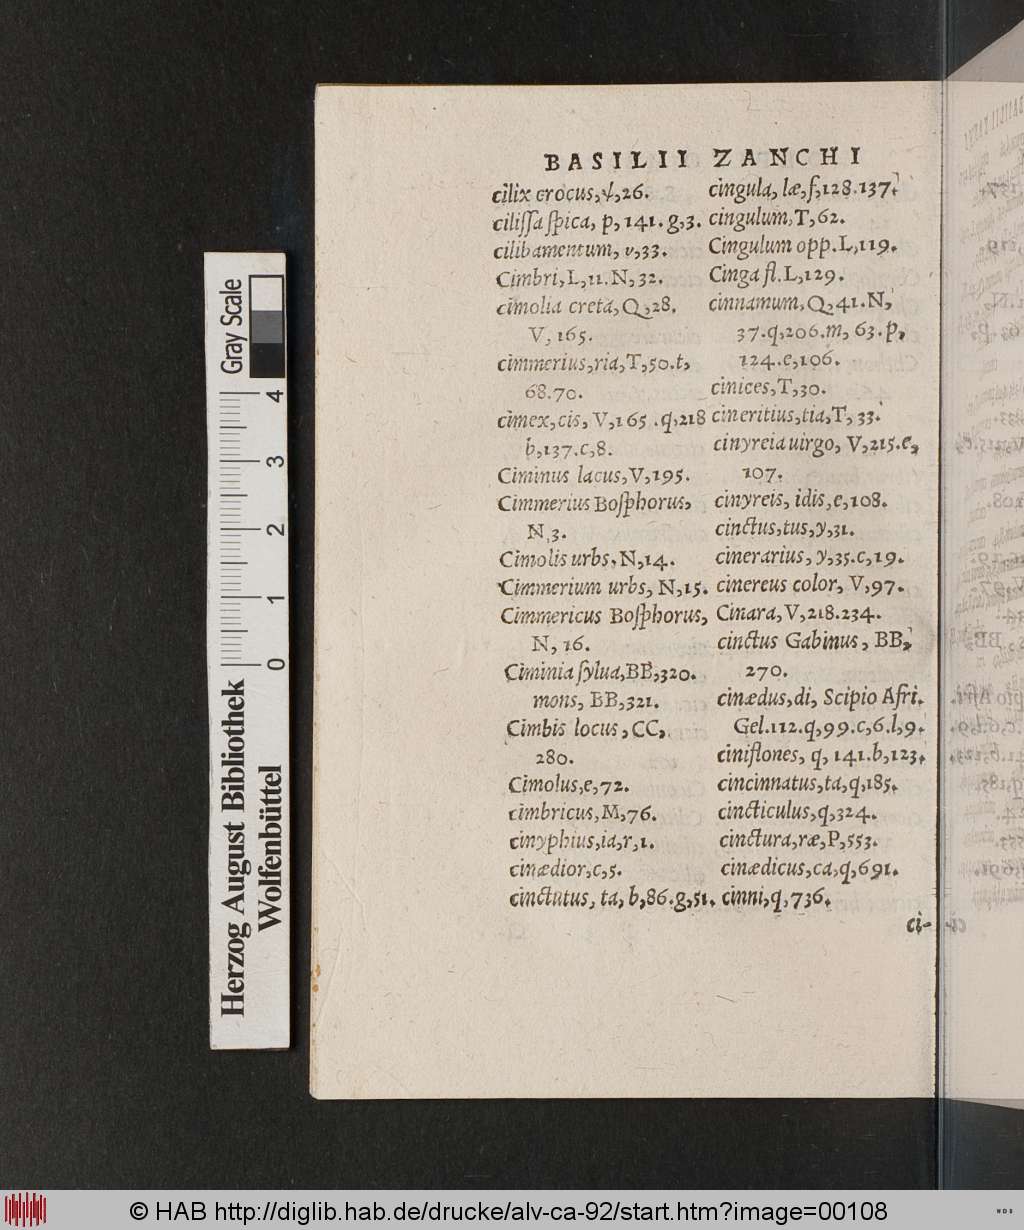 BASILII ZANCHI
cilix crocus, ψ, 26.
ciliſſa ſpica, p, 141. g, 3.
cilibamentum, v, 33.
Cimbri, L, 11. N, 32.
cimolia creta, Q, 28.
V, 165.
cimmerius, ria, T, 50. t,
68.70.
cimex, cis, V, 165 .q, 218
b, 137. c, 8.
Ciminus lacus, V, 195.
Cimmerius Boſphorus,
N, 3.
Cimolis urbs, N, 14.
Cimmerium urbs, N, 15.
Cimmericus Boſphorus,
N, 16.
Ciminia ſylua, BB, 320.
mons, BB, 321.
Cimbis locus, CC,
280.
Cimolus, e, 72.
cimbricus, M, 76.
cinyphius, ia, r, 1.
cinædior, c, 5.
cinctutus, ta, b, 86. g, 51.
cingula, læ, f, 128.137.
cingulum, T, 62.
Cingulum opp. L, 119.
Cinga fl. L, 129.
cinnamum, Q, 41. N,
37. q, 206. m, 63. p,
124. e, 106.
cinices, T, 30.
cineritius, tia, T, 33.
cinyreia uirgo, V, 215. e,
107.
cinyreis, idis, e, 108.
cinctus, tus, y, 31.
cinerarius, y, 35. c, 19.
cinereus color, V, 97.
Cinara, V, 218.234.
cinctus Gabinus, BB,
270.
cinædus, di, Scipio Afri.
Gel. 112. q, 99. c, 6. l, 9.
ciniflones, q, 141. b, 123.
cincinnatus, ta, q, 185.
cincticulus, q, 324.
cinctura, ræ, P, 553.
cinædicus, ca, q, 691.
cinni, q, 736.
ci-
Gray Scale
4
3
2
1
0
Herzog August Bibliothek
Wolfenbüttel
© HAB http://diglib.hab.de/drucke/alv-ca-92/start.htm?image=00108